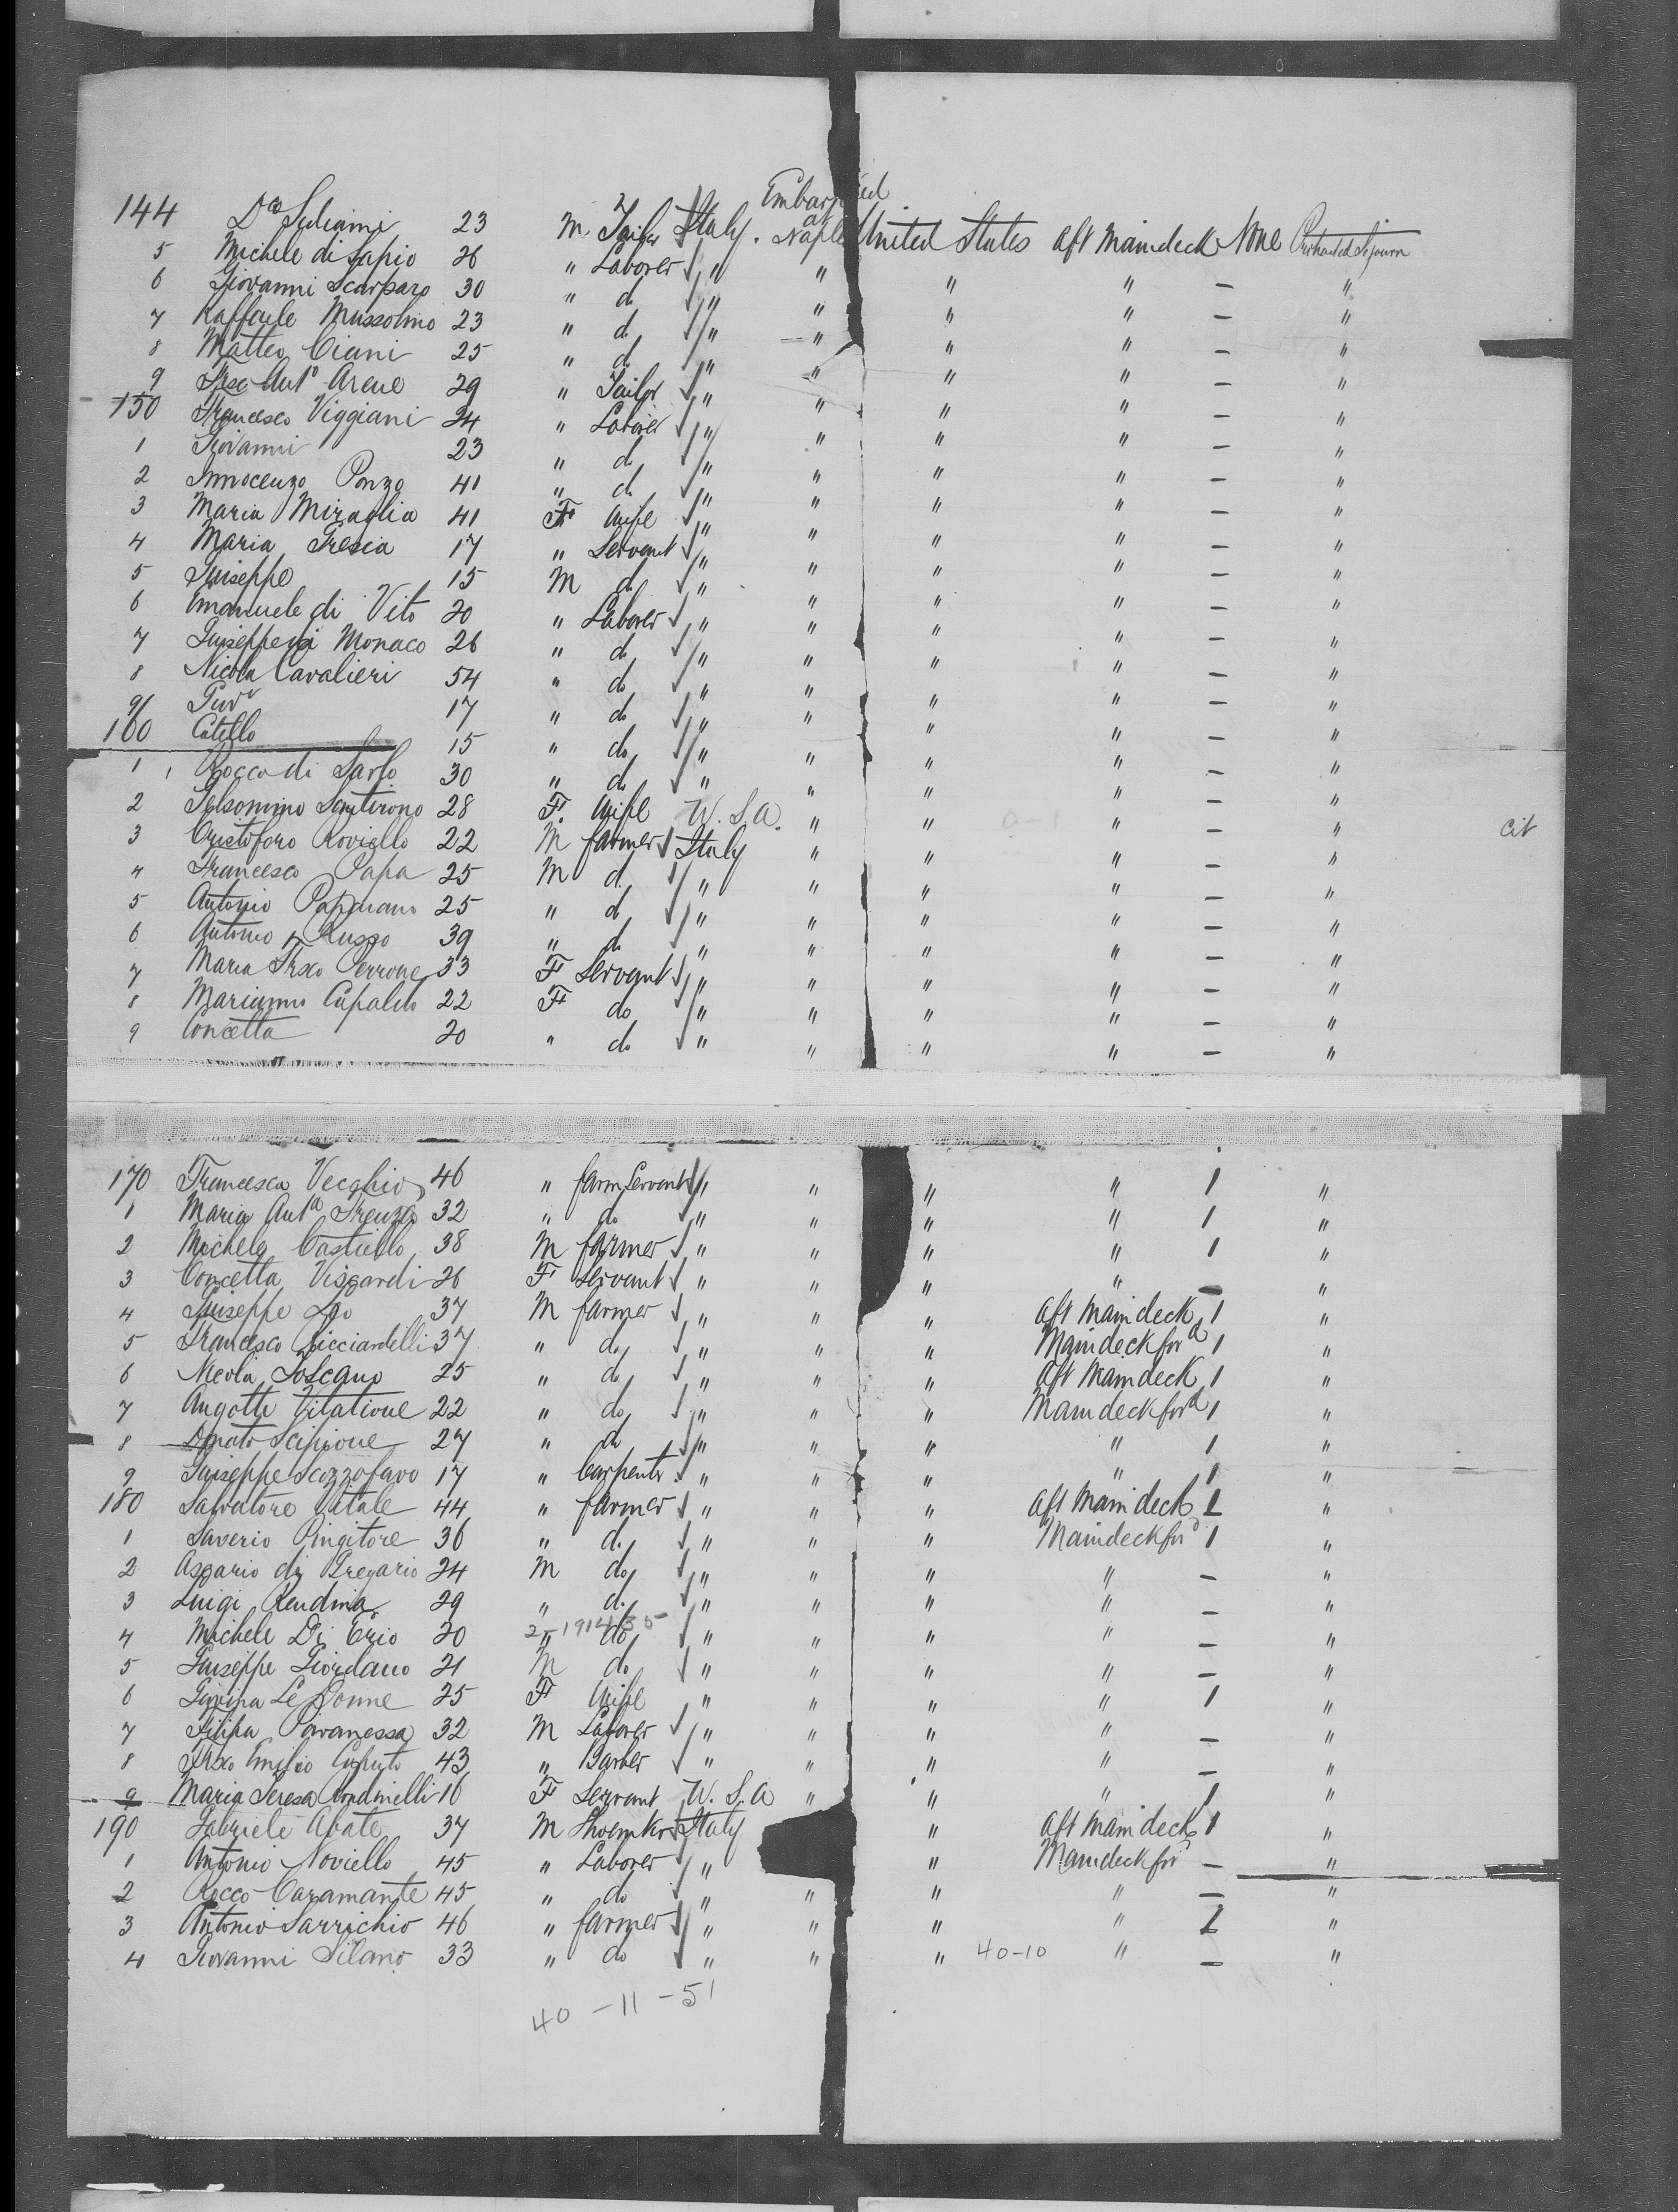 Embarked
144 Dco Suliani 23 M Tailor Italy. at Naples United States Aft Maindeck None Protracted Sejourn
5 Michele di Sapio 26 " Laborer " " " " - "
6 Giovanni Scarparo 30 " do " " " " - "
7 Raffaele Mussolino 23 " do " " " " - "
8 Matteo Ciani 25 " do " " " " - "
9 Frsco Anto Arene 29 " Tailor " " " " - "
150 Francesco Viggiani 24 " Laborer " " " " - "
1 Giovanni 23 " do " " " " - "
2 Innocenzo Ponzo 41 " do " " " " - "
3 Maria Miraglia 41 F Wife " " " " - "
4 Maria Tresia 17 " Servant " " " " - "
5 Giuseppe 15 M do " " " " - "
6 Emanuele di Vito 20 " Laborer " " " " - "
7 Giuseppe di Monaco 26 " do " " " " - "
8 Nicola Cavalieri 54 " do " " " " - "
9 Giov 17 " do " " " " - "
160 Catello 15 " do " " " " - "
1 Rocco di Sarlo 30 " do " " " " - "
2 Gelsomino 28 F. Wife U.S.A. " " " - " cit
3 Cristoforo Roviello 22 M farmer Italy " " " - "
4 Francesco Papa 25 M do " " " " - "
5 Antonio 25 " do " " " " - "
6 Antonio Russo 39 " do " " " " - "
7 Maria Frsco Perrone 33 F Servant " " " " - "
8 Marianna Capaldo 22 F do " " " " - "
9 Concetta 20 " do " " " " - "
170 Francesca Vecchio 46 " farm Servant " " " " 1 "
1 Maria Anta 32 " do " " " " 1 "
2 Michele Castiello 38 M farmer " " " " 1 "
3 Concetta Viscardi 26 F Servant " " " " - "
4 Giuseppe Leo 37 M farmer " " " aft Maindeck 1 "
5 Francesco Ricciardelli 37 " do " " " Maindeck ford 1 "
6 Toscano 25 " do " " " Aft Maindeck 1 "
7 Angotti Vitatione 22 " do " " " Maindeck ford 1 "
8 Donato Scipione 27 " do " " " " 1 "
9 Giuseppe Scozzofavo 17 " Carpentr. " " " " 1 "
180 Salvatore Vitale 44 " farmer " " " aft Maindeck 1 "
1 Saverio Pingitore 36 " do " " " Maindeck ford 1 "
2 di Gregario 24 M do " " " " - "
3 Luigi Rendina 29 " do " " " " - "
4 Michele Di Erio 20 " do " " " " - "
5 Giuseppe Giordano 21 M do " " " " - "
6 Le Donne 25 F Wife " " " " 1 "
7 Filipa Paranessa 32 M Laborer " " " " - "
8 Frsco Emilio Caputo 43 " Barber " " " " - "
9 Maria Teresa 16 F Servant U.S.A " " " 1 "
190 Gabriele Abate 37 M Shoemkr Italy " aft Maindeck 1 "
1 Antonio Noviello 45 " Laborer " " Maindeck for - "
2 Rocco Caramante 45 " do " " " " - "
3 Antonio Sarrichio 46 " farmer " " " " 1 "
4 Giovanni Silano 33 " do " " " 40-10 " - "
40 - 11 - 51